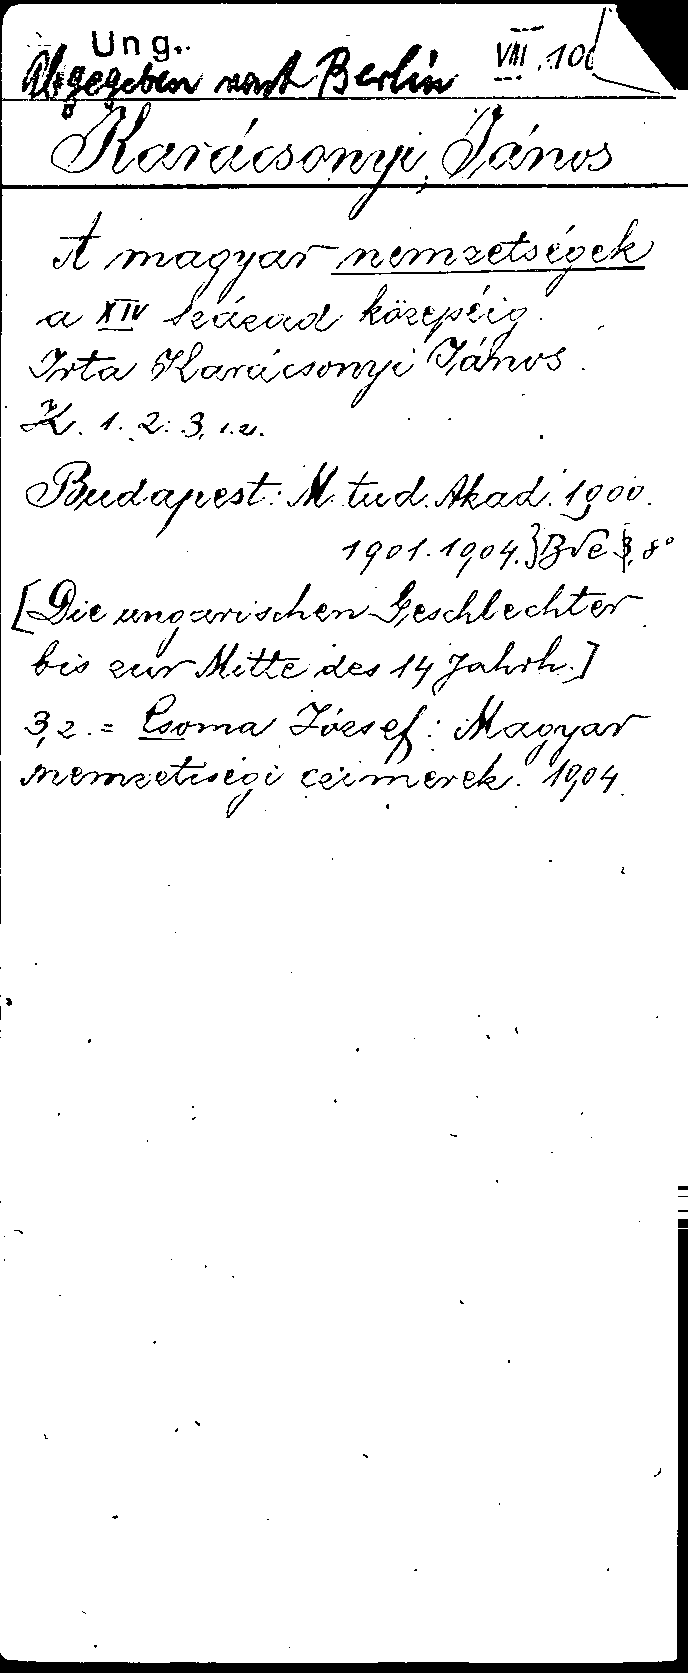 Ung.
VIII. 10
Abgegeben nach Berlin
Karácsonyi, János
A magyar nemzetségek
a XIV század közepéig.
Irta Karácsonyi János.
K. 1. 2. 3, 1.2.
Budapest: M. tud. Akad. 1900.
1901. 1904.} 8°
[Die ungarischen Geschlechter
bis zur Mitte des 14 Jahrh.]
3,2. = Csoma József: Magyar
nemzetiségi czimerek. 1904.